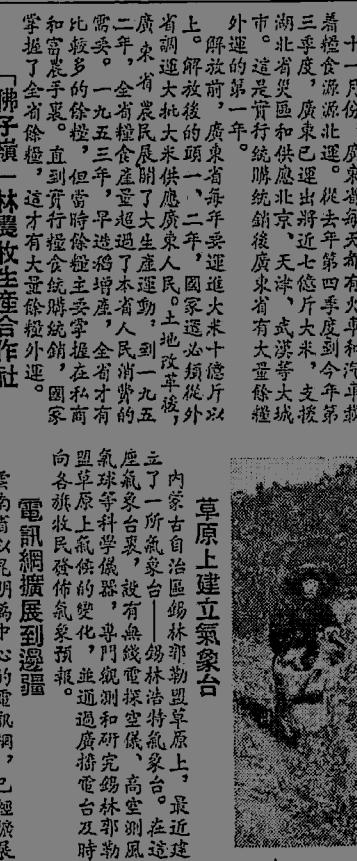 十一月份，廣東省每天都有火車和汽車載
着糧食源源北運。從去年第四季度到今年第
三季度，廣東已運出將近七億斤大米，支援
湖北省災區和供應北京、天津、武漢等大城
市。這是實行統購統銷後廣東省有大量餘糧
外運的第一年。
解放前，廣東省每年要運進大米十億斤以
上。解放後的頭一、二年，國家還必須從外
省調運大批大米供應廣東人民。土地改革後，
廣東省農民展開了大生產運動，到一九五
二年，全省糧食產量超過了本省人民消費的
需要。一九五三年，早造稻增產，全省才有
比較多的餘糧，但當時餘糧主要掌握在私商
和富農手裏。直到實行糧食統購統銷，國家
掌握了全省餘糧，這才有大量餘糧外運。
「佛子嶺」林農牧生產合作社
草原上建立氣象台
內蒙古自治區錫林郭勒盟草原上，最近建
立了一所氣象台——錫林浩特氣象台。在這
座氣象台裏，設有無綫電探空儀、高空測風
氣球等科學儀器，專門觀測和研究錫林郭勒
盟草原上氣候的變化，並通過廣播電台及時
向各旗牧民發佈氣象預報。
電訊網擴展到邊疆
雲南省以昆明爲中心的電訊網，已經擴展